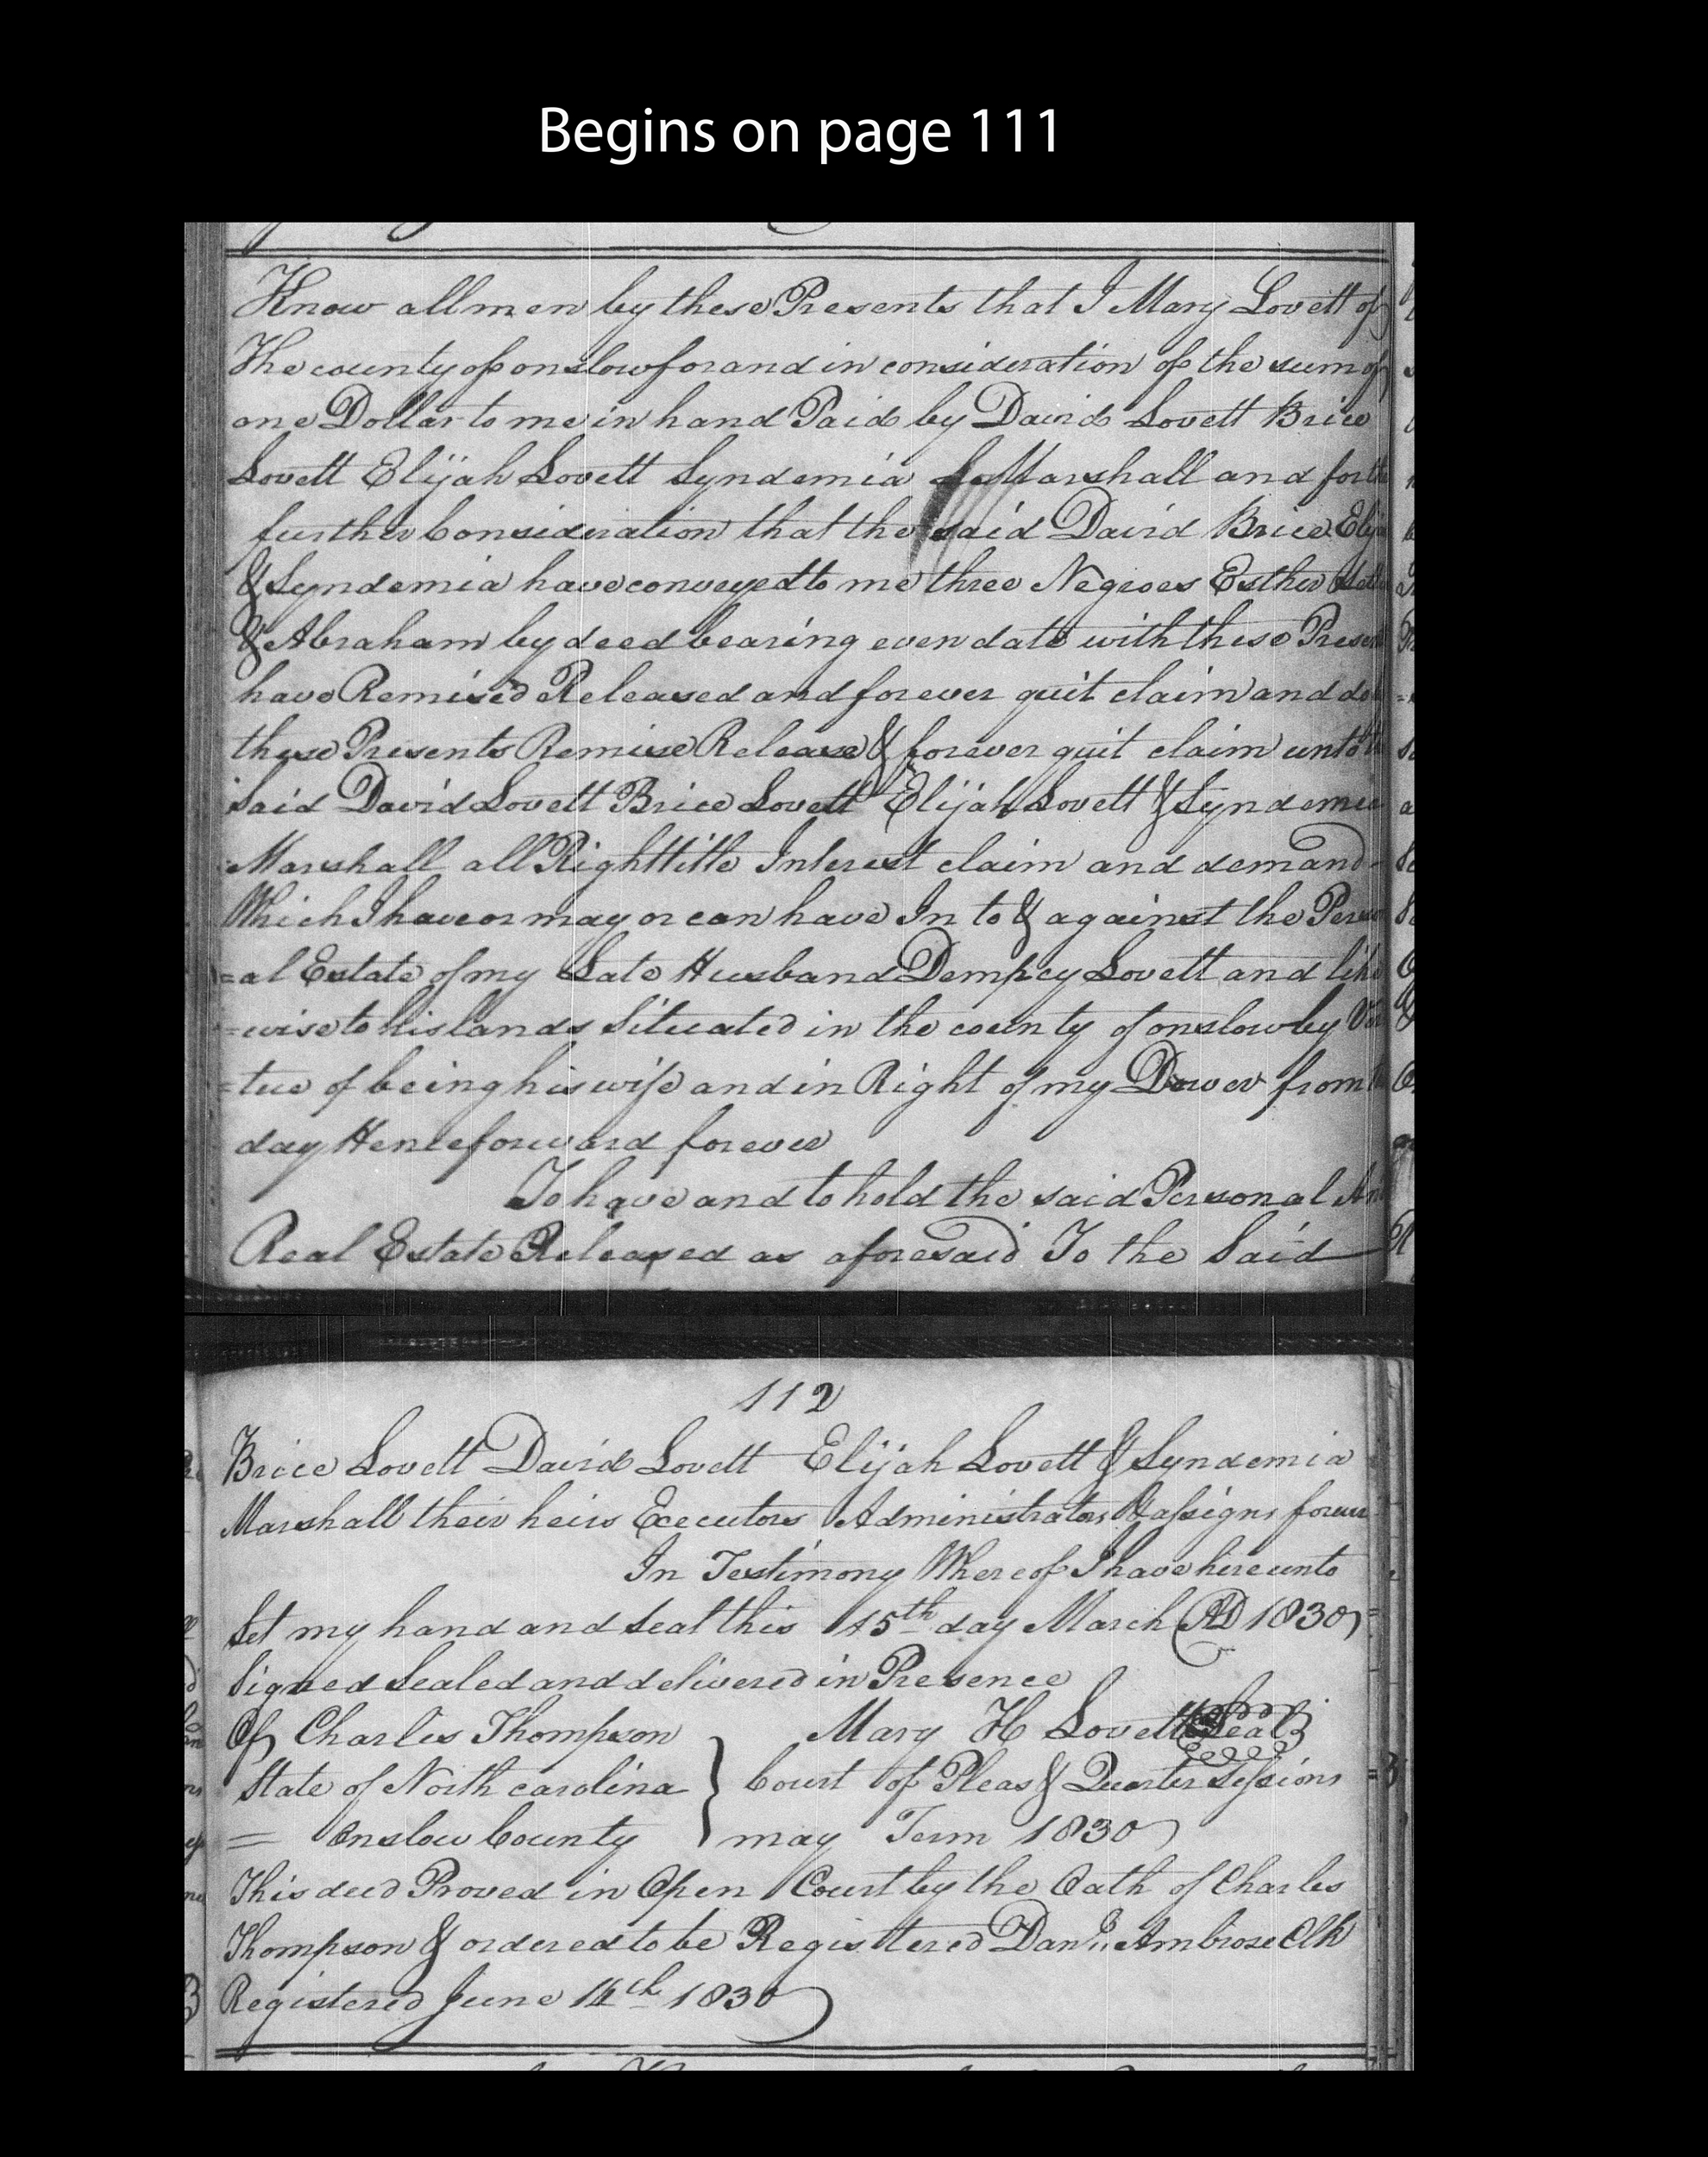 Begins on page 111
Know all men by these Presents that I Mary Lovett of
The county of onslow for and in consideration of the sum of
one Dollar to me in hand Paid by David Lovett Brice
Lovett Elijah Lovett Syndemia Marshall and for the
further Consideration that the said David Brice Elija
& Syndemia have conveyed to me three Negroes Esther
& Abraham by deed bearing even date with these Presen
have Remised Released and forever quit claim and do
these Presents Remise Release & forever quit claim unto th
said David Lovett Brice Lovett Elijah Lovett & Syndemia
Marshall all Right title Interest claim and demand
Which I have or may or can have In to & against the Person
=al Estate of my Late Husband Dempcy Lovett and like
=wise to his lands Situated in the county of onslow by Vir
=tue of being his wife and in Right of my Dower from
day Henceforward forever
To have and to hold the said Personal An
Real Estate Released as aforesaid To the Said
112
Brice Lovett David Lovett Elijah Lovett & Syndemia
Marshall their heirs Executors Administrators & assigns forever
In Testimony Whereof I have hereunto
Set my hand and Seal this 15th day March AD 1830
Signed Sealed and delivered in Presence
Of Charles Thompson Mary H Lovett Seal
State of North carolina } Court of Pleas & Quarter Sessions
= Onslow County } may Term 1830
This deed Proved in Open Court by the Oath of Charles
Thompson & ordered to be Registtered Danl. Ambrose Clk
Registered June 14th 1830